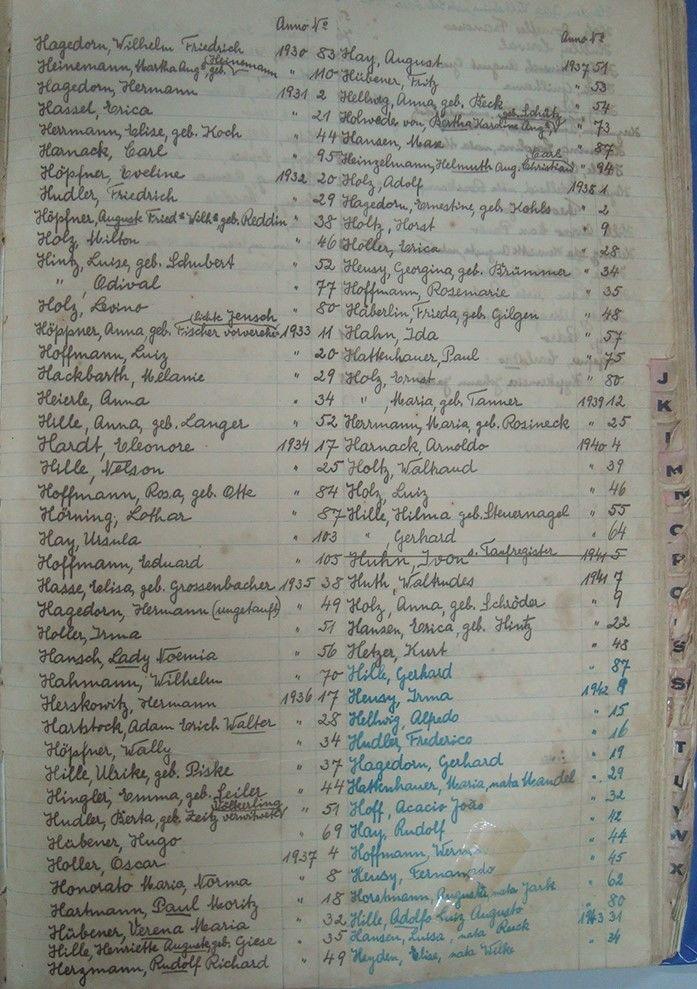 Anno No
Hagedorn, Wilhelm Friedrich 1930 83
Heinemann, Martha Aug. geb. Heinemann " 110
Hagedorn, Hermann 1931 2
Hassel, Erica " 21
Herrmann, Elise, geb. Koch " 44
Harnack, Carl " 95
Höpfner, Eveline 1932 20
Hudler, Friedrich " 29
Höpfner, Auguste Fried. Wilh. geb. Reddin " 38
Holz, Milton " 46
Hintz, Luise, geb. Schubert " 52
" Odival " 77
Holz, Levino " 80
Höppner, Anna geb. Fischer Jensch 1933 11
Hoffmann, Luiz " 20
Hackbarth, Melanie " 29
Heierle, Anna " 34
Hille, Anna, geb. Langer " 52
Hardt, Eleonore 1934 17
Hille, Nelson " 25
Hoffmann, Rosa, geb. Otte " 84
Hörning, Lothar " 87
Hay, Ursula " 103
Hoffmann, Eduard " 105
Hasse, Elisa, geb. Grossenbacher 1935 38
Hagedorn, Hermann (ungetauft) " 49
Holler, Irma " 51
Hansch, Lady Noemia " 56
Hahmann, Wilhelm " 70
Herskowitz, Hermann 1936 17
Hartstock, Adam Erich Walter " 28
Höpfner, Wally " 34
Hille, Ulrike, geb. Piske " 37
Hingler, Emma, geb. Seiler " 44
Hudler, Berta, geb. Zeitz verwitwete Völkerling " 51
Hübener, Hugo " 69
Holler, Oscar 1937 4
Honorato Maria, Norma " 8
Hartmann, Paul Moritz " 18
Hübener, Verena Maria " 32
Hille, Henriette Auguste, geb. Giese " 35
Herzmann, Rudolf Richard " 49
Anno No
Hay, August 1937 51
Hübener, Fritz " 53
Hellwig, Anna, geb. Beck " 54
Holwede von Bertha Karoline Aug. geb. Schütz " 73
Hansen, Max " 87
Heinzelmann, Helmuth Aug. Carl Christian " 94
Holz, Adolf 1938 1
Hagedorn, Ernestine, geb. Kohls " 2
Holtz, Horst " 9
Holler, Erica " 28
Heusy, Georgina, geb. Brümmer " 34
Hoffmann, Rosemarie " 35
Häberlin, Frieda, geb. Gilgen " 48
Hahn, Ida " 57
Hattenhauer, Paul " 75
Holz, Ernst " 80
" , Maria, geb. Tanner 1939 12
Herrmann, Maria, geb. Rosineck " 25
Harnack, Arnoldo 1940 4
Holtz, Walhaud " 39
Holz, Luiz " 46
Hille, Hilma geb. Steuernagel " 55
" , Gerhard " 64
Huhn, Ivon s. Taufregister 1941 5
Huth, Waltrudes 1941 7
Holz, Anna, geb. Schröder " 9
Hansen, Erica, geb. Hintz " 22
Hetzer, Kurt " 48
Hille, Gerhard " 87
Heusy, Irma 1942 8
Hellwig, Alfredo " 15
Hudler, Frederico " 16
Hagedorn, Gerhard " 19
Hattenhauer, Maria, nata Mandel " 29
Hoff, Acacio João " 32
Hay, Rudolf " 42
Hoffmann, Werner " 44
Heusy, Fernando " 45
Horstmann, Auguste, nata Jark " 62
Hille, Adolfo Luiz Augusto " 80
Hansen, Luisa, nata Reeck 1943 31
Heyden, Elise, nata Wilke " 34
J
K
M
N
O
P
S
S
T
U
V
W
X